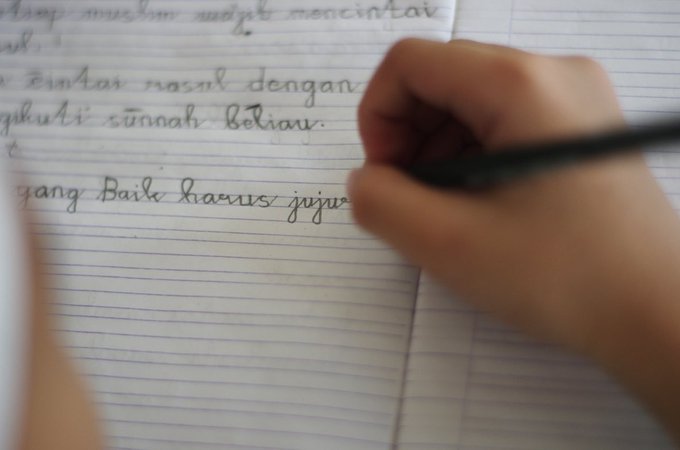 muslim wajib mencintai
cintai rasul dengan
sunnah Beliau.
gang Baik harus jujur